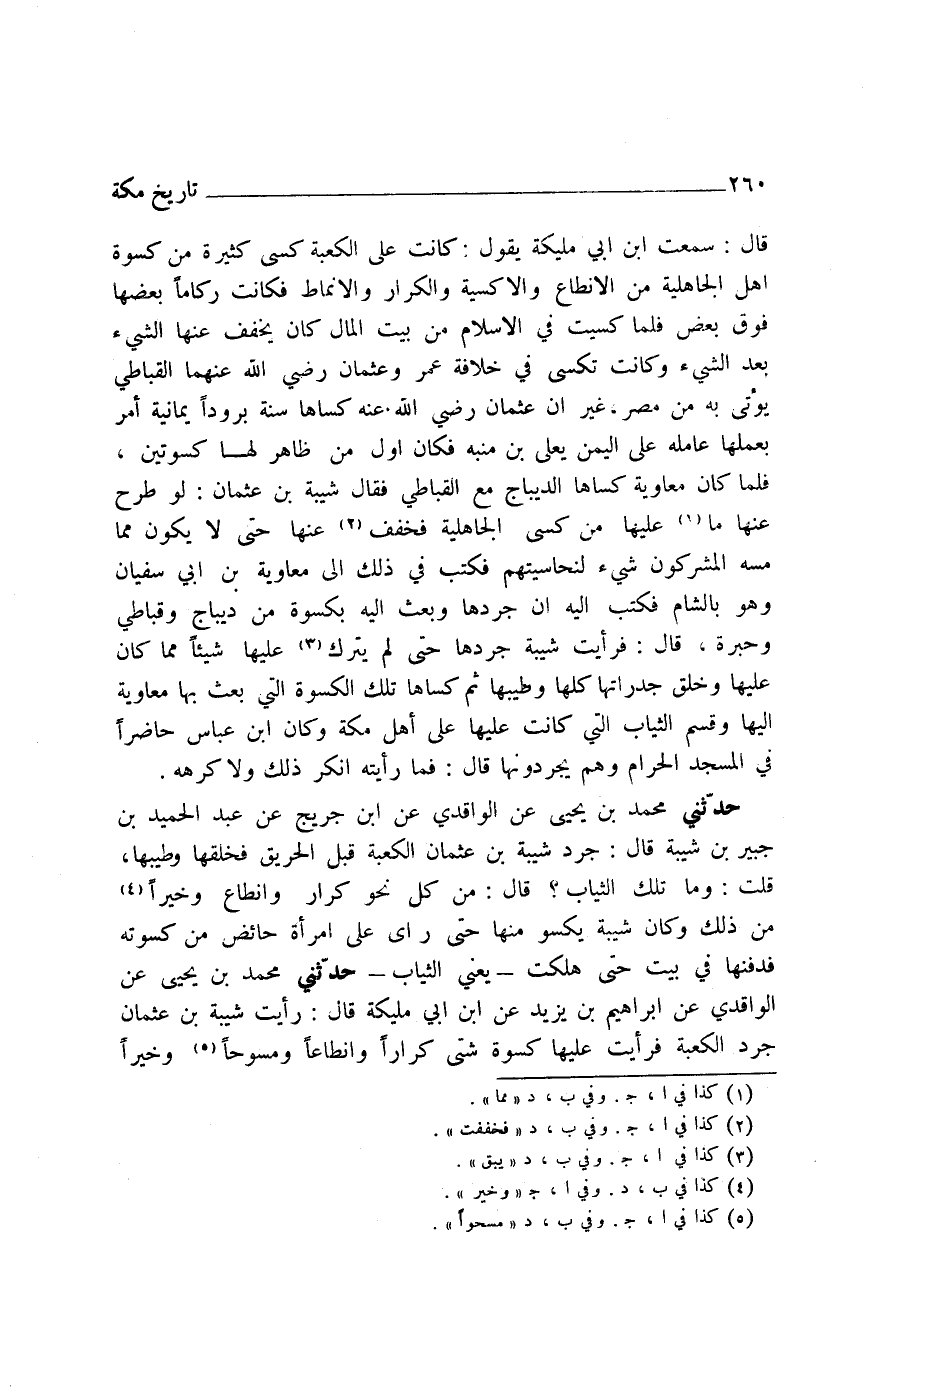 ٢٦٠ تاريخ مكة
قال : سمعت ابن ابي مليكة يقول : كانت على الكعبة كسى كثيرة من كسوة
اهل الجاهلية من الانطاع والاكسية والكرار والانماط فكانت ركاماً بعضها
فوق بعض فلما كسيت في الاسلام من بيت المال كان يخفف عنها الشيء
بعد الشيء وكانت تكسى في خلافة عمر وعثمان رضي الله عنهما القباطي
يؤتى به من مصر، غير ان عثمان رضي الله عنه كساها سنة بروداً يمانية أمر
بعملها عامله على اليمن يعلى بن منبه فكان اول من ظاهر لهـا كسوتين ،
فلما كان معاوية كساها الديباج مع القباطي فقال شيبة بن عثمان : لو طرح
عنها ما (١) عليها من كسى الجاهلية فخفف (٢) عنها حتى لا يكون مما
مسه المشركون شيء لنحاسيتهم فكتب في ذلك الى معاوية بن ابي سفيان
وهو بالشام فكتب اليه ان جردها وبعث اليه بكسوة من ديباج وقباطي
وحبرة ، قال : فرأيت شيبة جردها حتى لم يترك (٣) عليها شيئاً مما كان
عليها وخلق جدراتها كلها وطيبها ثم كساها تلك الكسوة التي بعث بها معاوية
اليها وقسم الثياب التي كانت عليها على أهل مكة وكان ابن عباس حاضراً
في المسجد الحرام وهم يجردونها قال : فما رأيته انكر ذلك ولا كرهه .
حدّثني محمد بن يحيى عن الواقدي عن ابن جريج عن عبد الحميد بن
جبير بن شيبة قال : جرد شيبة بن عثمان الكعبة قبل الحريق فخلقها وطيبها،
قلت : وما تلك الثياب ؟ قال : من كل نحو كرار وانطاع وخيراً (٤)
من ذلك وكان شيبة يكسو منها حتى راى على امرأة حائض من كسوته
فدفنها في بيت حتى هلكت – يعني الثياب – حدّثني محمد بن يحيى عن
الواقدي عن ابراهيم بن يزيد عن ابن ابي مليكة قال : رأيت شيبة بن عثمان
جرد الكعبة فرأيت عليها كسوة شتى كراراً وانطاعاً ومسوحاً (٥) وخيراً
(١) كذا في ا ، ج . وفي ب ، د « مما » .
(٢) كذا في ا ، ج . وفي ب ، د « فخففت » .
(٣) كذا في ا ، ج . وفي ب ، د « يبق » .
(٤) كذا في ب ، د . وفي ا ، ج « وخير » .
(٥) كذا في ا ، ج . وفي ب ، د « مسحواً » .